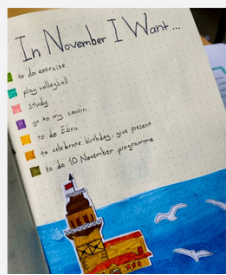 In November I Want...
to do exercise
play volleyball
study
go to my cousin
to do Ebru
to celebrate birthday, give present
to do 10 November programme